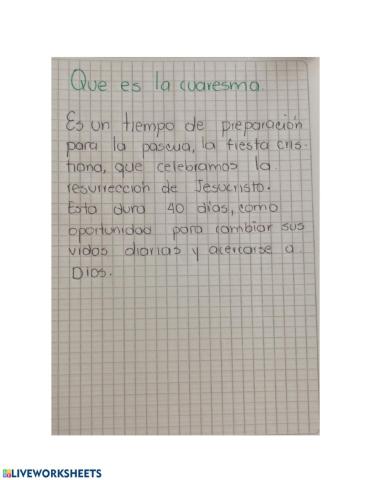 Que es la cuaresma.
Es un tiempo de preparación
para la pascua, la fiesta cris-
tiana, que celebramos la
resurrección de Jesucristo.
Esta dura 40 días, como
oportunidad para cambiar sus
vidas diarias y acercarse a
Dios.
LIVEWORKSHEETS